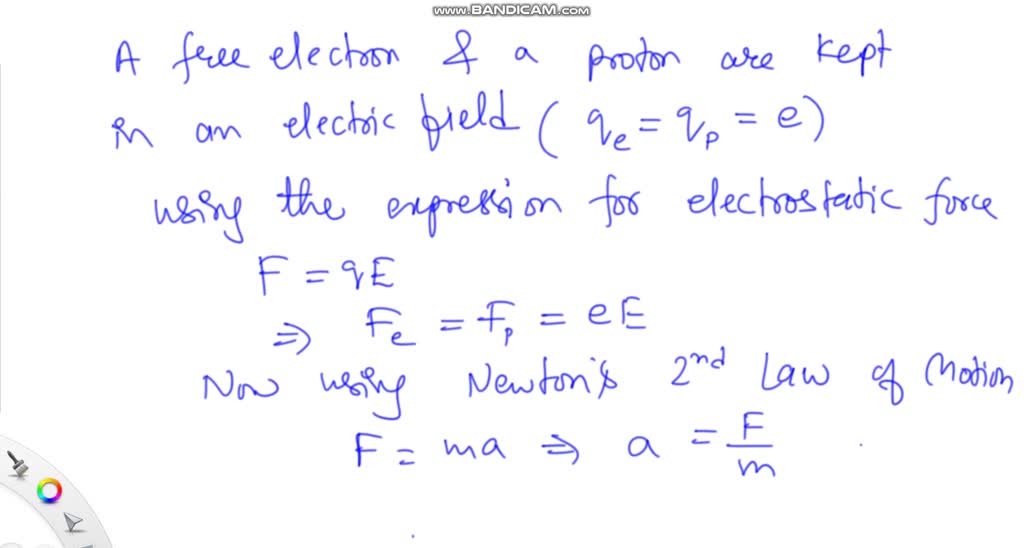 www.BANDICAM.com
A free electron & a proton are kept
in an electric field ( qe = qp = e )
using the expression for electrostatic force
F = qE
⇒ Fe = Fp = eE
Now using Newton's 2nd Law of Motion
F = ma ⇒ a = F/m